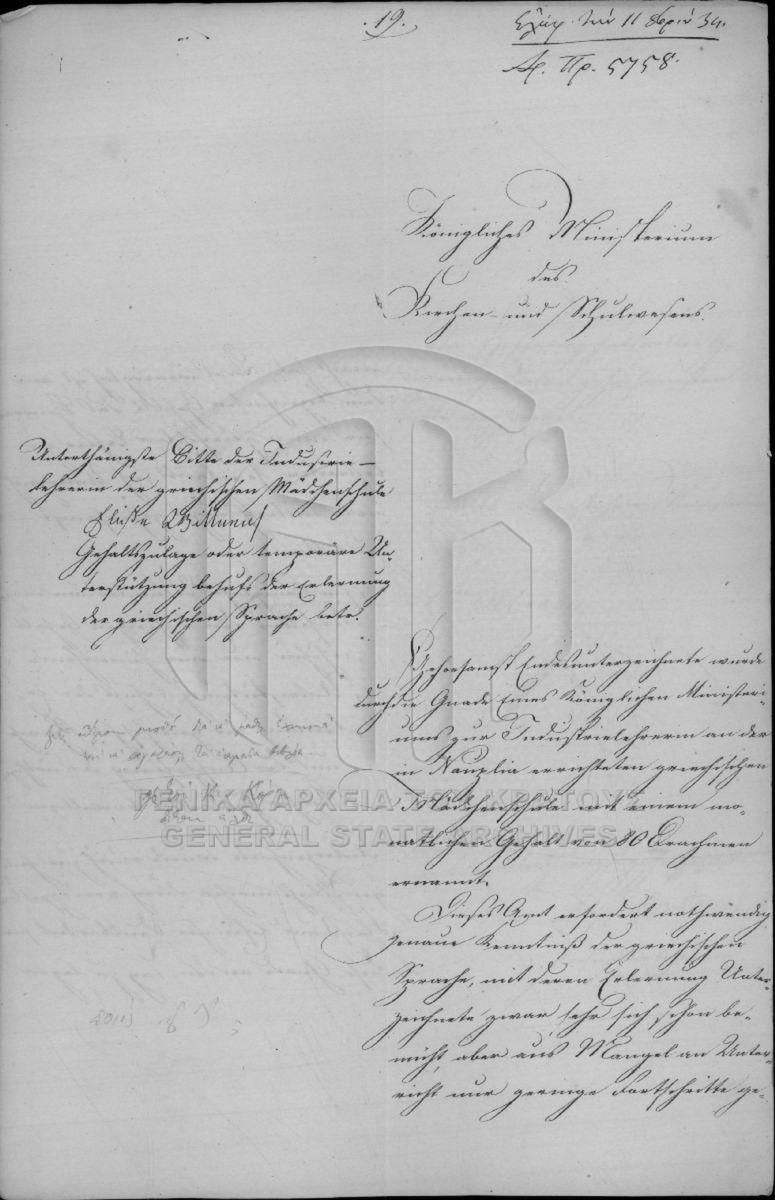 . 19.
Ἐλήφ. τὴν 11 8βρίου 34.
Ἀρ. Πρ. 5758.
Königliches Ministerium
des
Kirchen- und Schulwesens.
Unterthänigste Bitte der Industrie-
lehrerin der griechischen Mädchenschule
Elise
Gehaltszulage oder temporäre Un-
terstützung behufs der Erlernung
der griechischen Sprache betr.
Gehorsamst Endesunterzeichnete wurde
durch die Gnade Eines Königlichen Ministeri-
ums zur Industrielehrerin an der
in Nauplia errichteten griechischen
Mädchenschule mit einem mo-
natlichen Gehalt von 80 Drachmen
ernannt.
Dieses Amt erfordert nothwendig
genaue Kenntniß der griechischen
Sprache, mit deren Erlernung Unter-
zeichnete zwar sehr sich schon be-
müht, aber aus Mangel an Unter-
richt nur geringe Fortschritte ge-
ΓΕΝΙΚΑ ΑΡΧΕΙΑ ΤΟΥ ΚΡΑΤΟΥΣ
GENERAL STATE ARCHIVES